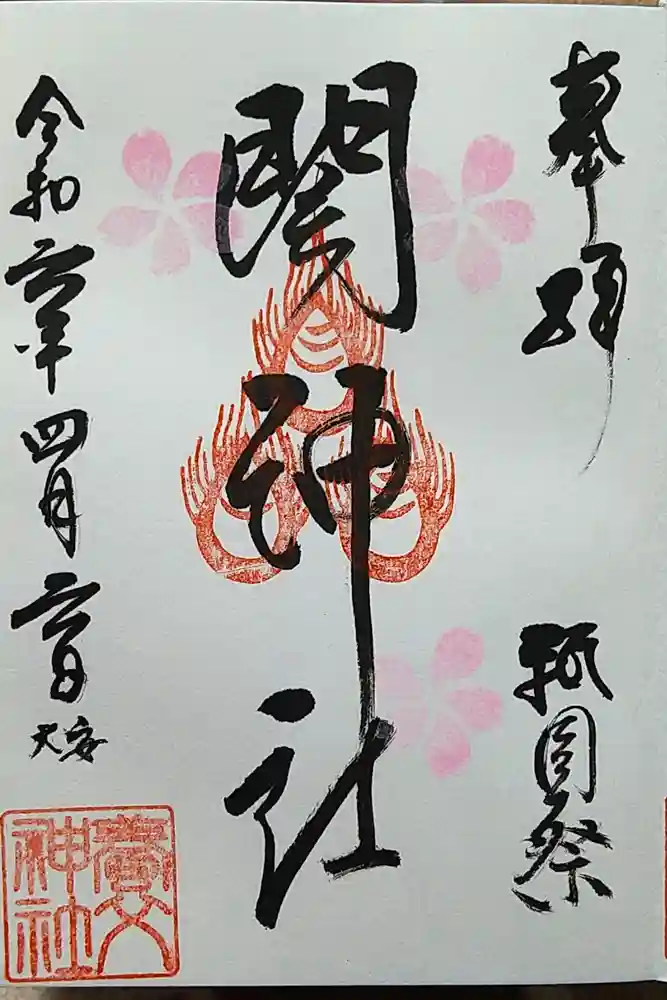 奉拝
祇園祭
神社
令和六年四月六日
大安
神社